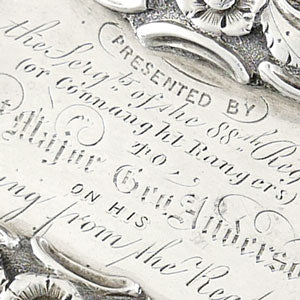 PRESENTED BY
the Sergts of the 88th Reg
(or Connaught Rangers)
to,
Major Geo. Anderso
ON HIS
ing from the Reg